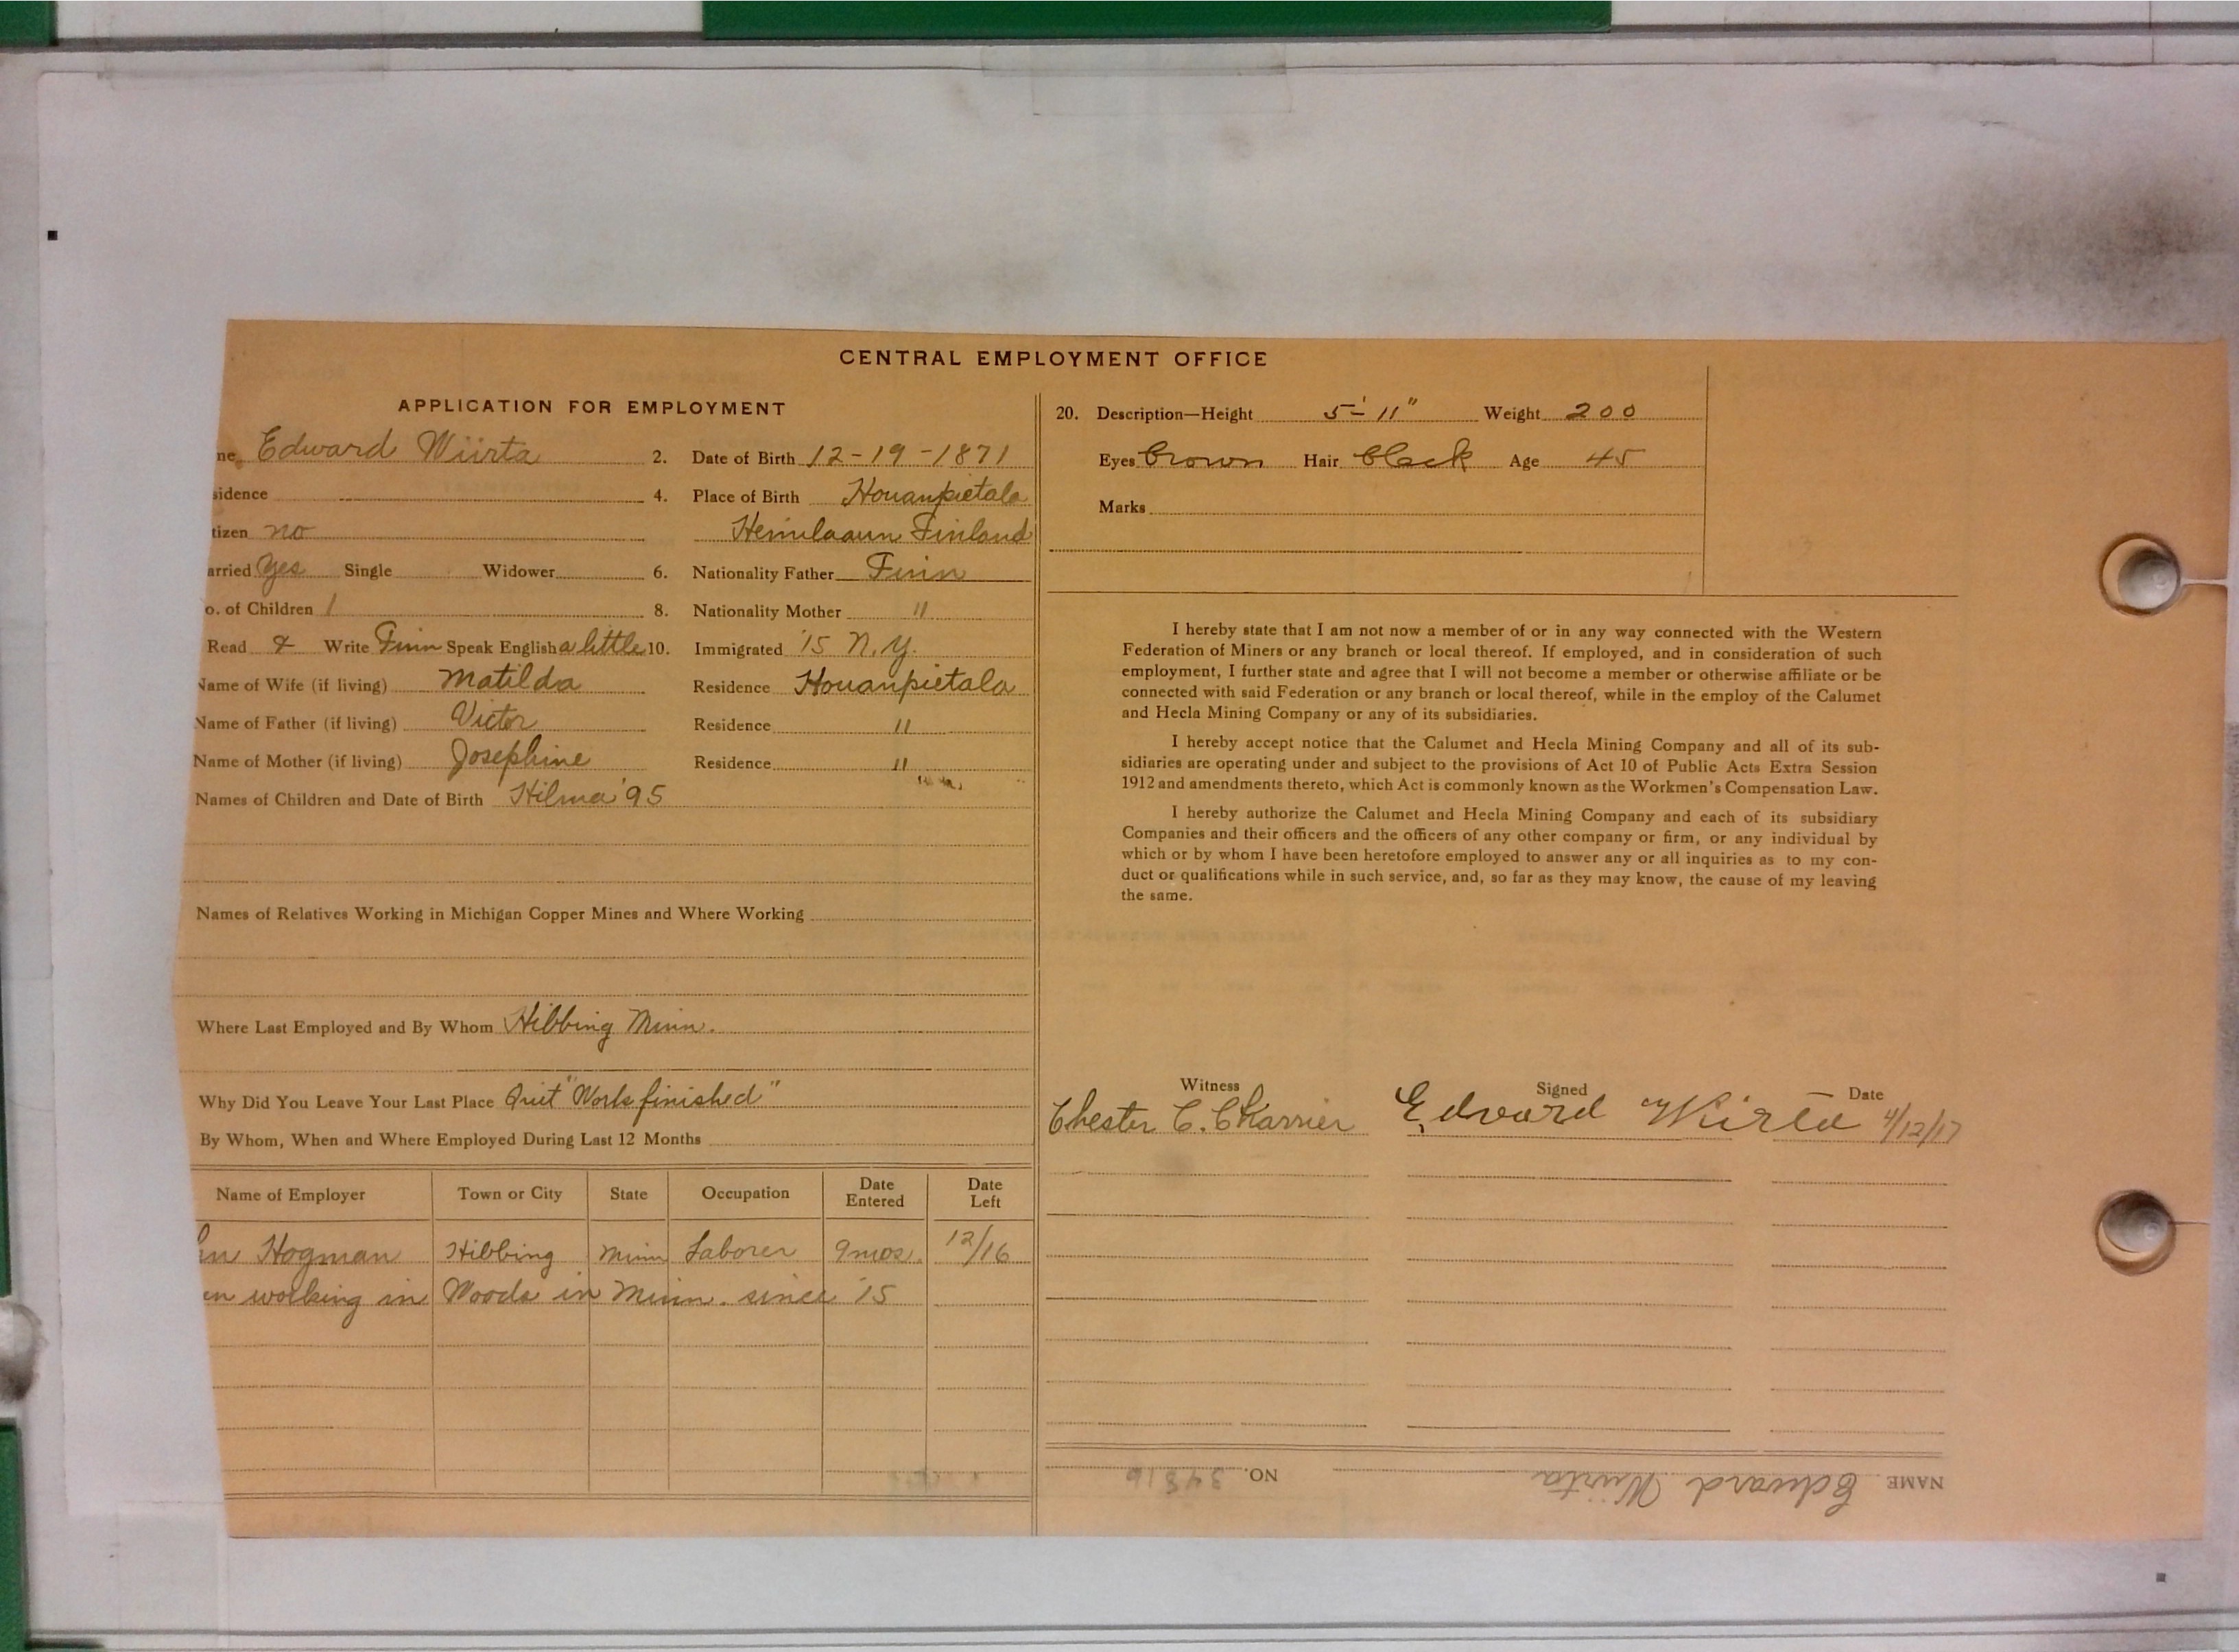 CENTRAL EMPLOYMENT OFFICE
APPLICATION FOR EMPLOYMENT
ne Edward Wiirta 2. Date of Birth 12-19-1871
sidence 4. Place of Birth Houanpietala
tizen no Heinlaaun Finland
arried Yes Single Widower 6. Nationality Father Finn
o. of Children 1 8. Nationality Mother "
Read & Write Finn Speak English a little 10. Immigrated '15 N.Y.
Name of Wife (if living) Matilda Residence Houanpietala
Name of Father (if living) Victor Residence "
Name of Mother (if living) Josephine Residence "
Names of Children and Date of Birth Hilma '95
Names of Relatives Working in Michigan Copper Mines and Where Working
Where Last Employed and By Whom Hibbing Minn.
Why Did You Leave Your Last Place Quit "Work finished"
By Whom, When and Where Employed During Last 12 Months
Name of Employer Town or City State Occupation Date Entered Date Left
hn Hogman Hibbing Minn Laborer 9 mos. 12/16
en working in Woods in Minn. since '15
20. Description—Height 5'-11" Weight 200
Eyes Brown Hair Black Age 45
Marks
I hereby state that I am not now a member of or in any way connected with the Western
Federation of Miners or any branch or local thereof. If employed, and in consideration of such
employment, I further state and agree that I will not become a member or otherwise affiliate or be
connected with said Federation or any branch or local thereof, while in the employ of the Calumet
and Hecla Mining Company or any of its subsidiaries.
I hereby accept notice that the Calumet and Hecla Mining Company and all of its sub-
sidiaries are operating under and subject to the provisions of Act 10 of Public Acts Extra Session
1912 and amendments thereto, which Act is commonly known as the Workmen's Compensation Law.
I hereby authorize the Calumet and Hecla Mining Company and each of its subsidiary
Companies and their officers and the officers of any other company or firm, or any individual by
which or by whom I have been heretofore employed to answer any or all inquiries as to my con-
duct or qualifications while in such service, and, so far as they may know, the cause of my leaving
the same.
Witness Signed Date
Chester C. Charrier Edward Wirta 4/12/17
NAME Edward Wiirta NO. 34816